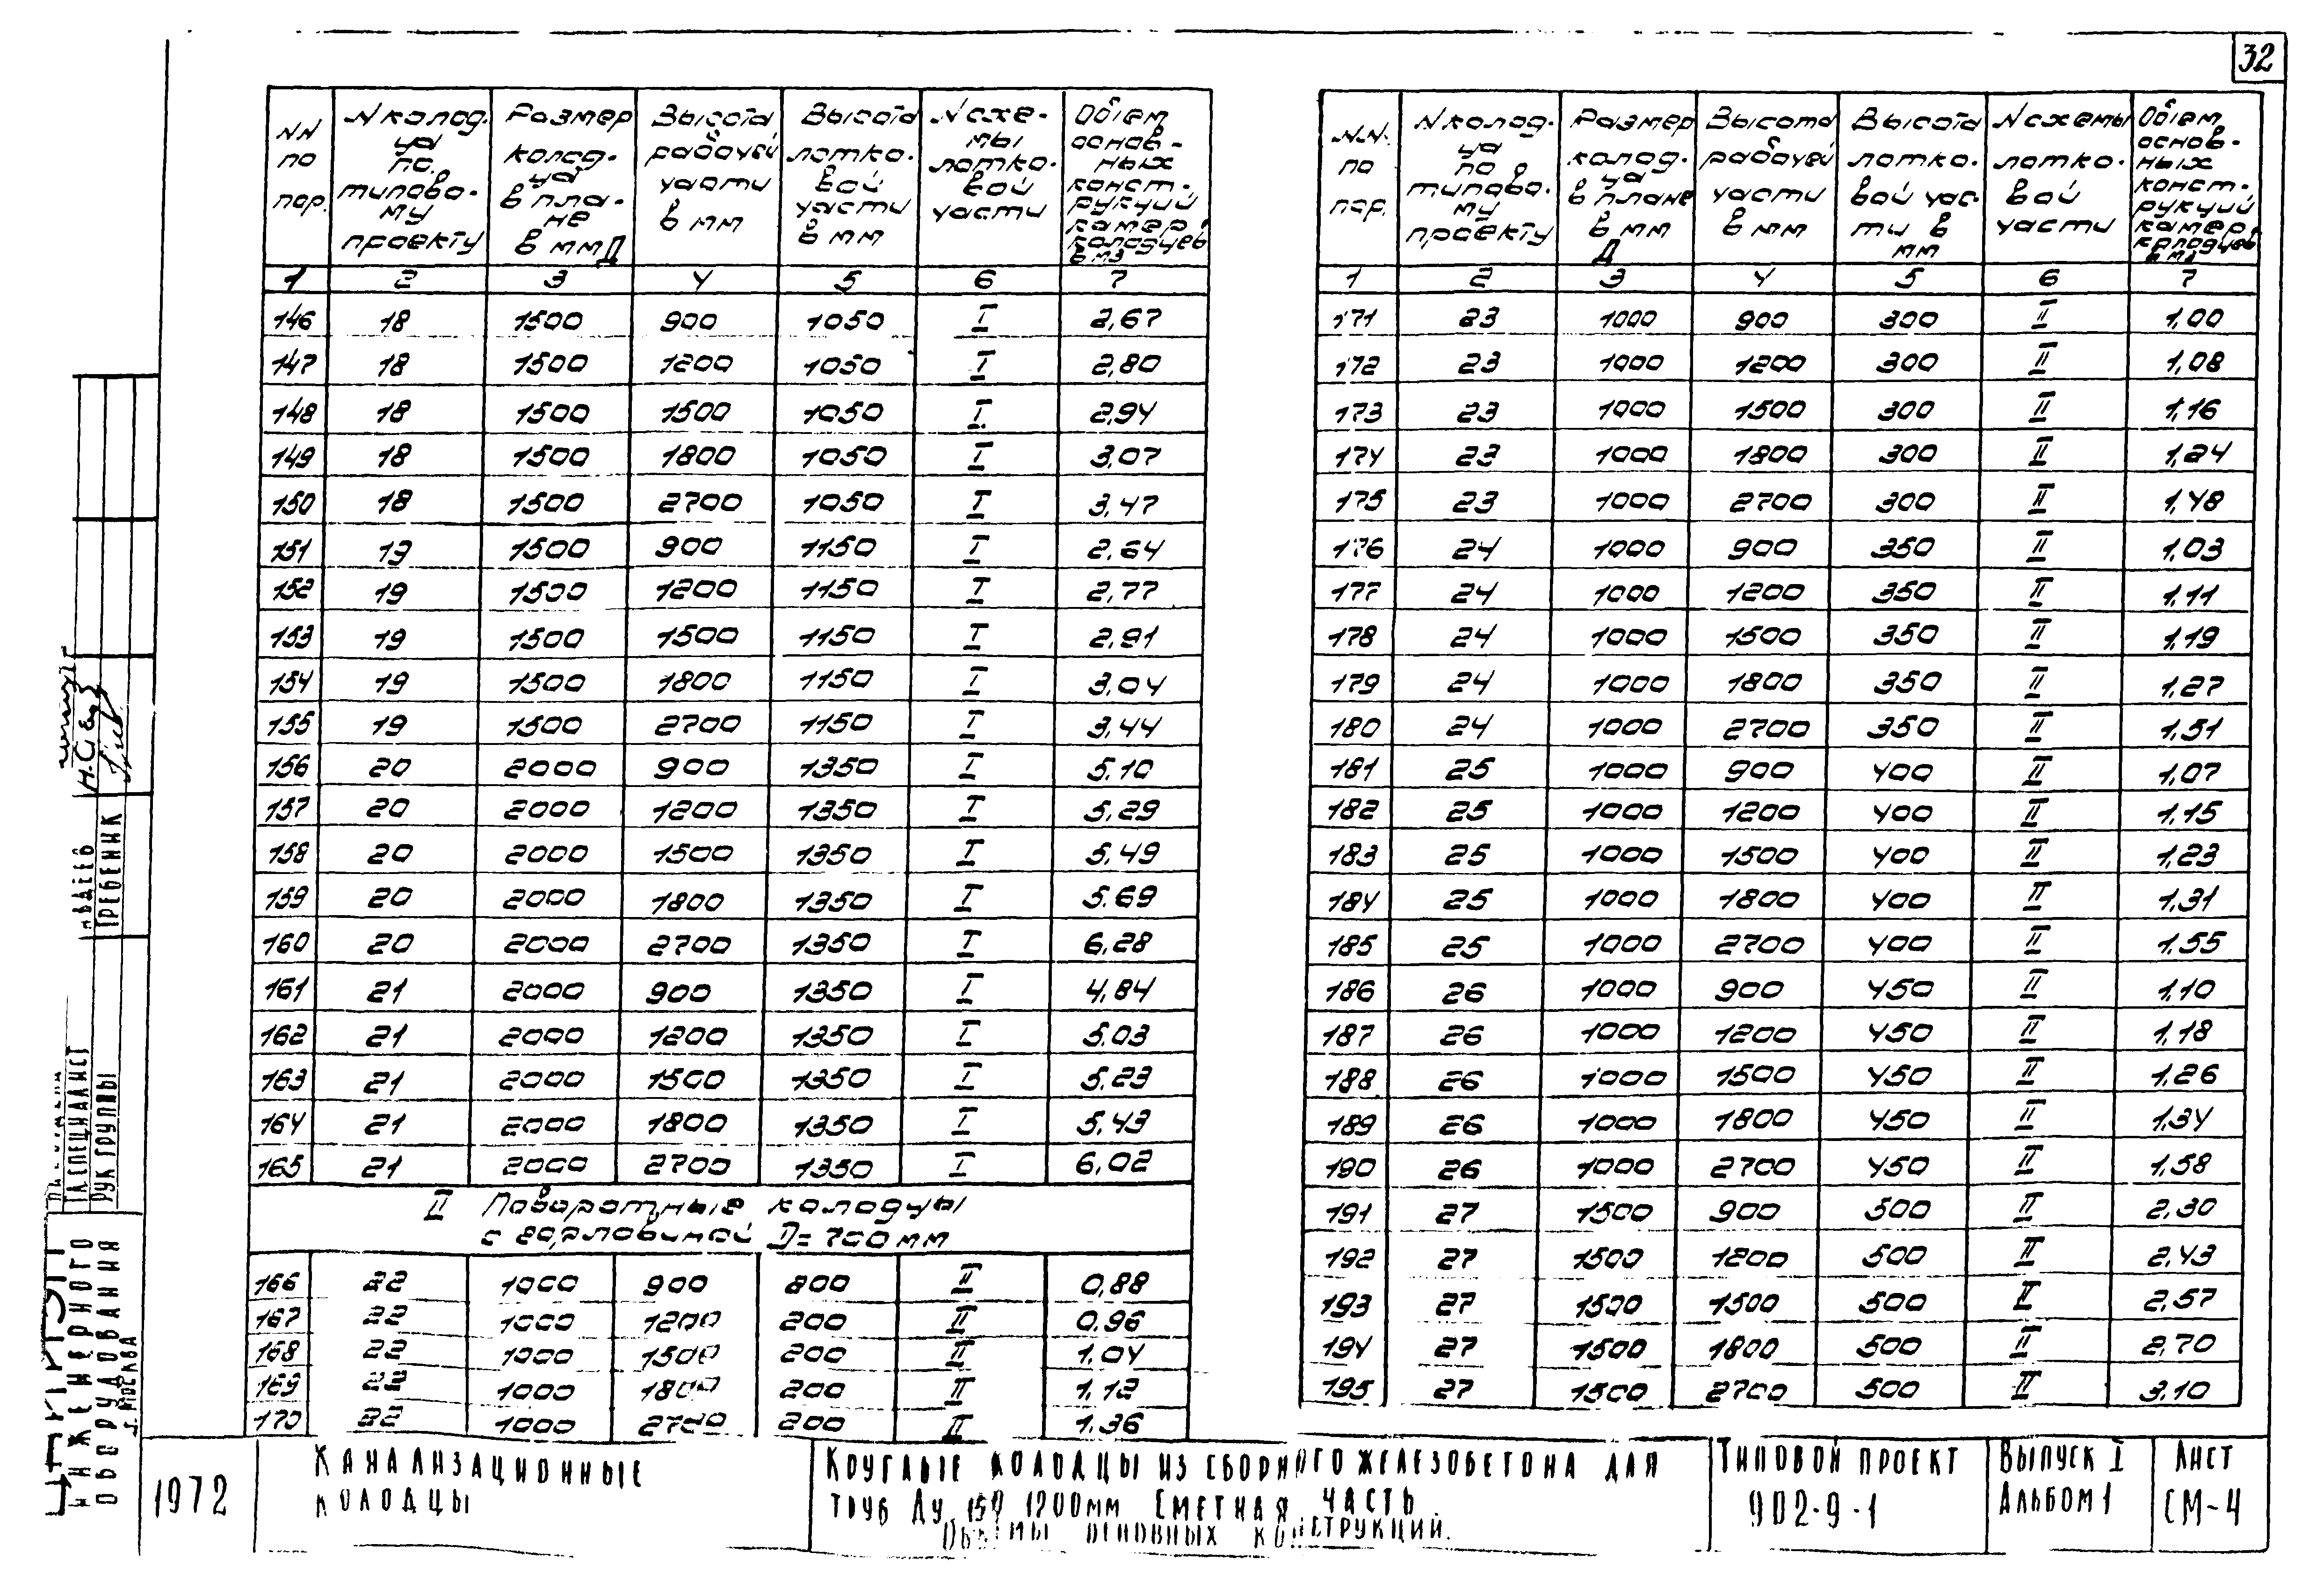 32
NN по пор. | N колод-ца по типово-му проекту | Размер колод-ца в пла-не в мм Д | Высота рабочей части в мм | Высота лотко-вой части в мм | N схе-мы лотко-вой части | Объем основ-ных конст-рукций камер, колодцев в м3
1 2 3 4 5 6 7
146 18 1500 900 1050 I 2,67
147 18 1500 1200 1050 I 2,80
148 18 1500 1500 1050 I 2,94
149 18 1500 1800 1050 I 3,07
150 18 1500 2700 1050 I 3,47
151 19 1500 900 1150 I 2,64
152 19 1500 1200 1150 I 2,77
153 19 1500 1500 1150 I 2,91
154 19 1500 1800 1150 I 3,04
155 19 1500 2700 1150 I 3,44
156 20 2000 900 1350 I 5,10
157 20 2000 1200 1350 I 5,29
158 20 2000 1500 1350 I 5,49
159 20 2000 1800 1350 I 5,69
160 20 2000 2700 1350 I 6,28
161 21 2000 900 1350 I 4,84
162 21 2000 1200 1350 I 5,03
163 21 2000 1500 1350 I 5,23
164 21 2000 1800 1350 I 5,43
165 21 2000 2700 1350 I 6,02
II Поворотные колодцы
с горловиной D=700мм
166 22 1000 900 200 II 0,88
167 22 1000 1200 200 II 0,96
168 22 1000 1500 200 II 1,04
169 22 1000 1800 200 II 1,12
170 22 1000 2700 200 II 1,36
N.N. по пор. | N колод-ца по типово-му проекту | Размер колод-ца в плане в мм Д | Высота рабочей части в мм | Высота лотко-вой час-ти в мм | N схемы лотко-вой части | Объем основ-ных конст-рукций камер, колодцев в м3
1 2 3 4 5 6 7
171 23 1000 900 300 II 1,00
172 23 1000 1200 300 II 1,08
173 23 1000 1500 300 II 1,16
174 23 1000 1800 300 II 1,24
175 23 1000 2700 300 II 1,48
176 24 1000 900 350 II 1,03
177 24 1000 1200 350 II 1,11
178 24 1000 1500 350 II 1,19
179 24 1000 1800 350 II 1,27
180 24 1000 2700 350 II 1,51
181 25 1000 900 400 II 1,07
182 25 1000 1200 400 II 1,15
183 25 1000 1500 400 II 1,23
184 25 1000 1800 400 II 1,31
185 25 1000 2700 400 II 1,55
186 26 1000 900 450 II 1,10
187 26 1000 1200 450 II 1,18
188 26 1000 1500 450 II 1,26
189 26 1000 1800 450 II 1,34
190 26 1000 2700 450 II 1,58
191 27 1500 900 500 II 2,30
192 27 1500 1200 500 II 2,43
193 27 1500 1500 500 II 2,57
194 27 1500 1800 500 II 2,70
195 27 1500 2700 500 II 3,10
ТРЕБЕНИК
ГЛ СПЕЦИАЛИСТ
РУК ГРУППЫ
ИНЖЕНЕРНОГО
ОБОРУДОВАНИЯ
г. МОСКВА
1972
КАНАЛИЗАЦИОННЫЕ
КОЛОДЦЫ
КРУГЛЫЕ КОЛОДЦЫ ИЗ СБОРНОГО ЖЕЛЕЗОБЕТОНА ДЛЯ
ТРУБ Ду 150 1200мм СМЕТНАЯ ЧАСТЬ
ОБЪЕМЫ ОСНОВНЫХ КОНСТРУКЦИЙ.
ТИПОВОЙ ПРОЕКТ
902-9-1
ВЫПУСК I
АЛЬБОМ 1
ЛИСТ
СМ-4